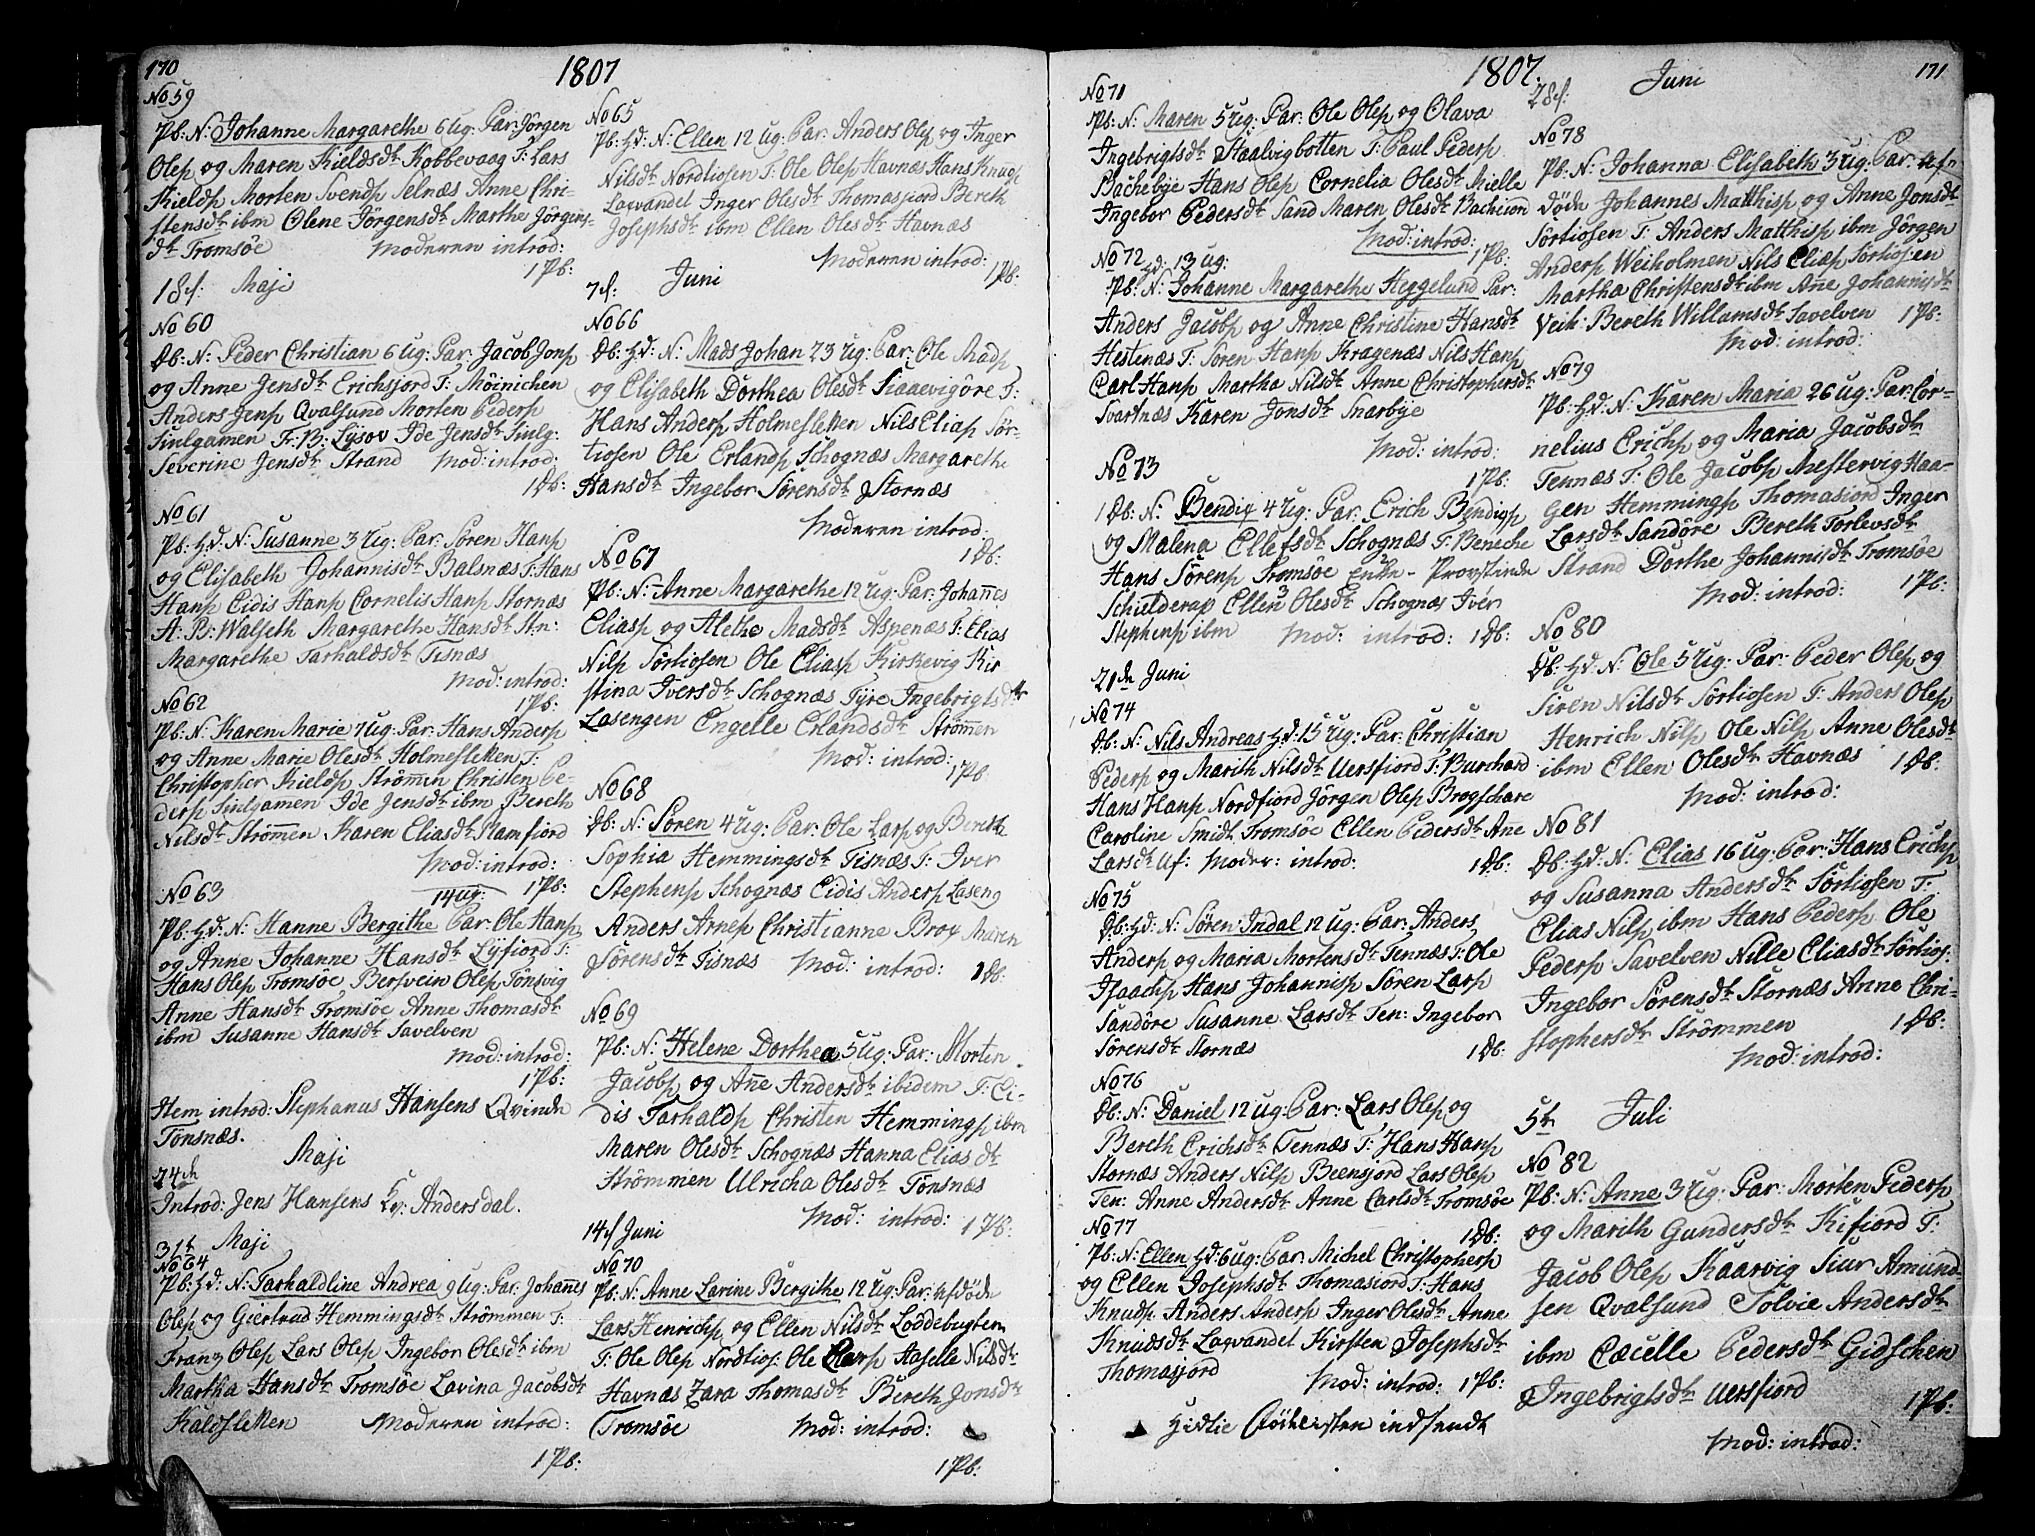 170
1807
No 59
Pb: N: Johanne Margarethe 6 Ug: Par: Jörgen
Olsp og Maren Kieldsdt Kobbevaag T: Lars
Kieldsp Morten Svendsp Selnæs Anne Chri-
stensdt ibm Olene Jörgensdt Marthe Jörgens-
dt Tromsöe Moderen introd:
1 Pb:
18de Maji
No 60
Db: N: Peder Christian 6 Ug: Par: Jacob Jonsp
og Anne Jensdt Erichsjord T: Möinichen
Anders Jensp Qvalsund Morten Pedersp
Finlgamen Fr: B: Lysov Ide Jensdt Finlg:
Severine Jensdt Strand Mod: introd:
1 Db:
No 61
Pb: Hd: N: Susanne 3 Ug: Par: Sören Hansp
og Elisabeth Johannisdt Balsnæs T: Hans
Hansp Eidis Hansp Cornelis Hansp Stornæs
A: B: Walseth Margarethe Hansdt An:
Margarethe Tarhaldsdt Tisnæs
Mod: introd:
1 Pb:
No 62
Pb: N: Karen Marie 7 Ug: Par: Hans Andersp
og Anne Marie Olesdt Holmesletten T:
Christopher Kieldsp Strömmen Christen Pe-
dersp Finlgamen Ide Jensdt ibm Bereth
Nilsdt Strömmen Karen Eliasdt Ramfiord
Mod: introd:
1 Pb:
No 63
14 Ug:
Pb: Hd: N: Hanne Bergithe Par: Ole Hansp
og Anne Johanne Hansdt Lyfiord T:
Hans Olsp Tromsöe Bersvein Olsp Tönsvig
Anne Hansdt Tromsöe Anne Thomasdt
ibm Susanne Hansdt Savelven
Mod: introd:
1 Pb:
Hem introd: Stephanus Hansens Qvinde
Tönsnæs.
Maji
24de
Introd: Jens Hansens Qv: Andersdal.
31te Maji
No 64
Pb: Hd: N: Tarhaldline Andrea 9 Ug: Par: Johannes
Olsp og Giertrud Hemmingsdt Strömmen T:
Franz Olsp Lars Olsp Ingebor Olesdt ibm
Martha Hansdt Tromsöe Lavina Jacobsdt
Kaldsletten Moderen introd:
1 Pb:
No 65
Pb: Hd: N: Ellen 12 Ug: Par: Anders Olsp og Inger
Nilsdt Nordtiosen T: Ole Olsp Havnæs Hans Knudsp
Lavandet Inger Olesdt Thomasjord Bereth
Josephsdt ibm Ellen Olesdt Havnæs
Moderen introd:
1 Pb:
7de Juni
No 66
Db: Hd: N: Mads Johan 23 Ug: Par: Ole Madsp
og Elisabeth Dorthea Olesdt Skaaevigöre T:
Hans Andersp Holmesletten Nils Eliasp Sör-
tiosen Ole Erlandsp Schognæs Margarethe
Hansdt Ingebor Sörensdt Stornæs
Moderen introd:
1 Db:
No 67
Pb: N: Anne Margarethe 12 Ug: Par: Johannes
Eliasp og Alethe Madsdt Aspenæs T: Elias
Nilsp Sörtiosen Ole Eliasp Kirkevig Kir
stina Iversdt Schognæs Tyre Ingebrigtsdtr
Lasengen Engelle Erlandsdt Strömmen
Mod: introd:
1 Pb
No 68
Db: N: Sören 4 Ug: Par: Ole Larsp og Bereth
Sophia Hemmingsdt Tisnæs T: Iver
Stephensp Schognæs Eidis Andersp Laseng
Anders Arnesp Christianne Brox Maren
Sörensdt Tisnæs Mod: introd: 1 Db:
No 69
Pb: N: Helene Dorthea 5 Ug: Par: Morten
Jacobsp og Anne Andersdt ibidem T: Ei-
dis Tarhaldsp Christen Hemmingsp ibm
Maren Olesdt Schognæs Hanna Elias dt
Strömmen Ulricha Olesdt Tönsnæs
Mod: introd: 1 Pb:
14de Juni
No 70
Pb: N: Anne Lavine Bergithe 12 Ug: Par: Afdöde
Lars Henrichsp og Ellen Nilsdt Loddebugten
T: Ole Olsp Nordtios: Ole Larsp Haselle Nilsdt
Havnæs Zara Thomasdt Bereth Jonsdt
Tromsöe Mod: introd:
1 Pb:
1807.
171
No 71
Pb: N: Maren 5 Ug: Par: Ole Olsp og Olava
Ingebrigtsdt Staalvigbotten T: Paul Pedersp
Bachebye Hans Olsp Cornelia Olesdt Mielle
Ingebor Pedersdt Sand Maren Olesdt Bacheion
Mod: introd:
1 Pb:
No 72 Hd: 13 Ug:
Pb: N: Johanne Margarethe Heggelund Par:
Anders Jacobsp og Anne Christine Hansdt
Hestenæs T: Sören Hansp Kragenæs Nils Hansp
Carl Hansp Martha Nilsdt Anne Christophersdt
Svartnæs Karen Jonsdt Snarbye
Mod: introd:
1 Pb:
No 73
1 Db: N: Bendix 4 Ug: Par: Erich Bendixsp
og Malena Ellefsdt Schognæs T: Beneche
Hans Sörensp Tromsöe Enke- Provstinde
Schielderup Ellen Olesdt Schognæs Iver
Stephensp ibm Mod: introd: 1 Db:
21de Juni
No 74
Db: N: Nils Andreas Hd: 15 Ug: Par: Christian
Pedersp og Marith Nilsdt Uersfiord T: Burchard
Hans Hansp Nordfiord Jörgen Olsp Brogschare
Caroline Smidt Tromsöe Ellen Pedersdt Anne
Larsdt Uf: Moder: introd: 1 Db:
No 75
Db: Hd: N: Sören Indal 12 Ug: Par: Anders
Andersp og Maria Mortensdt Tennæs T: Ole
Isaachsp Hans Johannisp Sören Larsp
Sandöre Susanne Larsdt Ten: Ingebor
Sörensdt Stornæs 1 Db:
No 76
Db: N: Daniel 12 Ug: Par: Lars Olsp og
Bereth Erichsdt Tennæs T: Hans Hansp
Stornæs Anders Nilsp Beensjord Lars Olsp
Ten: Anne Andersdt Anne Carlsdt Tromsöe
1 Db:
No 77
Pb: N: Ellen Hd: 6 Ug: Par: Michel Christophersp
og Ellen Josephsdt Thomasiord T: Hans
Knudsp Anders Andersp Inger Olesdt Anne
Knudsdt Lagvandet Kirsten Josephsdt
Thomasjord Mod: introd: 1 Pb:
Hidtil indsendt
28de Juni
No 78
Pb: N: Johanna Elisabeth 3 Ug: Par: Af-
döde Johannes Matthisp og Anne Jonsdt
Sörtiosen T: Anders Matthisp ibm Jörgen
Andersp Weiholmen Nils Eliæsp Sörtiosen
Martha Christensdt ibm Ane Johannisdt
Veih: Bereth Willumsdt Savelven 1 Pb:
Mod: introd:
No 79
Pb: Hd: N: Karen Maria 26 Ug: Par: Cor-
nelius Erichsp og Maria Jacobsdt
Tennæs T: Ole Jacobsp Mestervig Haa-
gen Hemmingsp Thomasiord Inger
Larsdt Sandöre Bereth Torlevsdt
Strand Dorthe Johannisdt Tromsöe
Mod: introd: 1 Pb:
No 80
Db: Hd: N: Ole 5 Ug: Par: Peder Olsp og
Siren Nilsdt Sörtiosen T: Anders Olsp
Henrich Nilsp Ole Nilsp Anne Olesdt
ibm Ellen Olesdt Havnæs 1 Db:
Mod: introd:
No 81
Db: Hd: N: Elias 16 Ug: Par: Hans Erichsp
og Susanna Andersdt Sörtiosen T:
Elias Nilsp ibm Hans Pedersp Ole
Pedersp Savelven Nille Eliasdt Sörtios:
Ingebor Sörensdt Stornæs Anne Chri-
stophersdt Strömmen 1 Db:
Mod: introd:
5te Juli
No 82
Pb: N: Anne 3 Ug: Par: Morten Pedersp
og Marith Gundersdt Kifiord T:
Jacob Olsp Kaarvig Siur Amund-
sen Qvalsund Sölvie Andersdt
ibm Cæcelle Pedersdt Gidschen
Ingebrigtsdt Uersfiord 1 Pb:
Mod: introd: